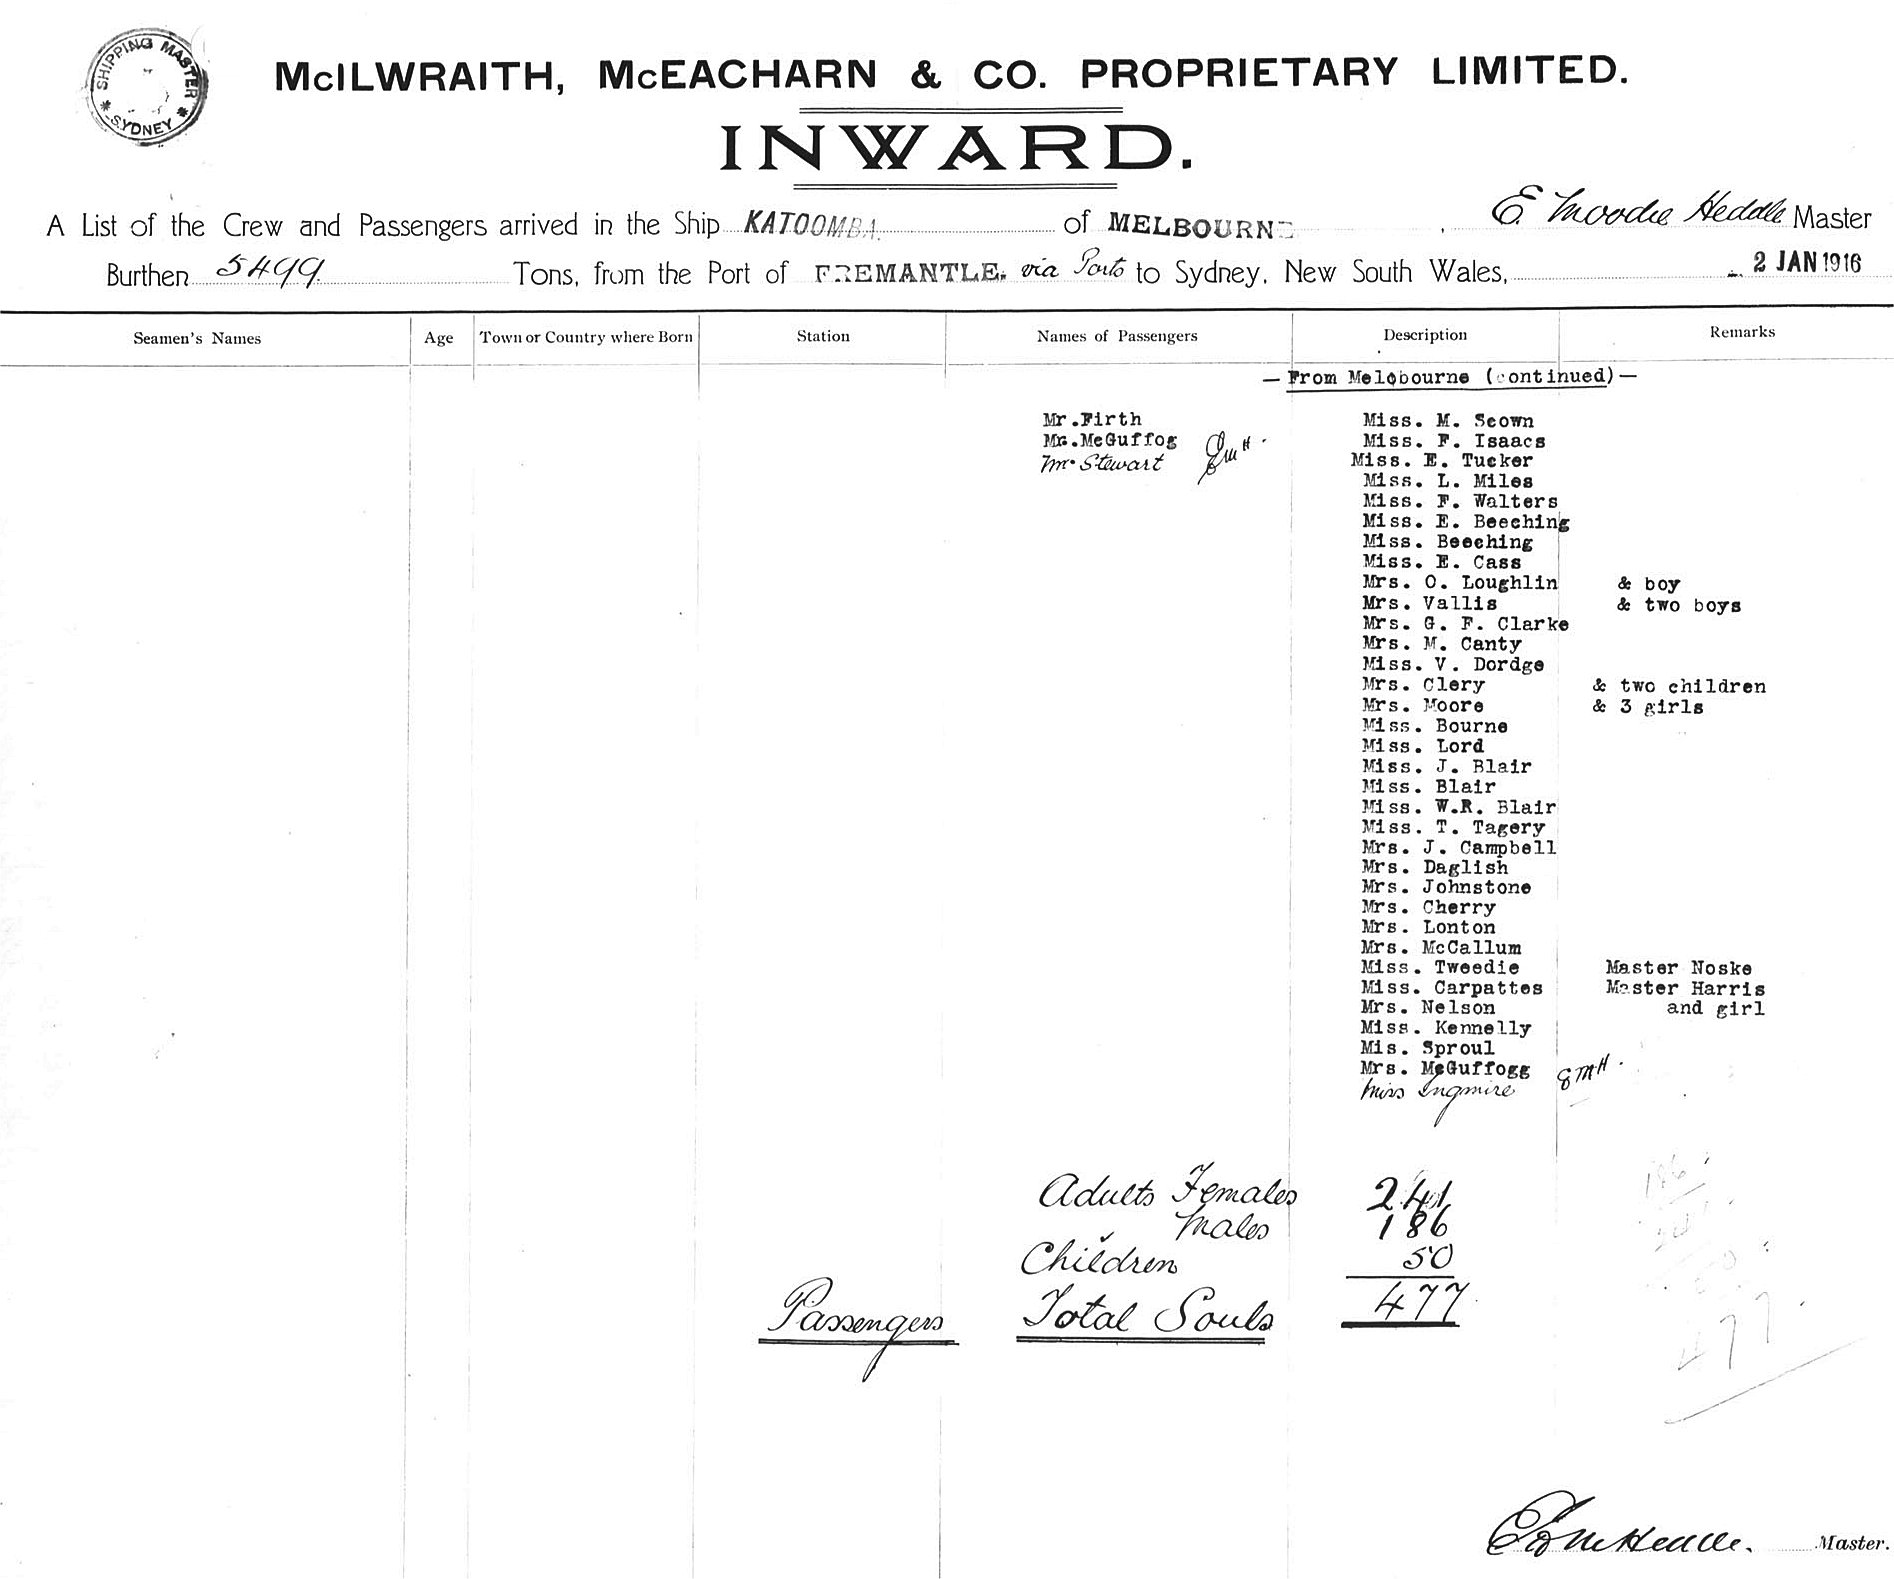 SHIPPING MASTER
* SYDNEY *
McILWRAITH, McEACHARN & CO. PROPRIETARY LIMITED.
INWARD.
A List of the Crew and Passengers arrived in the Ship KATOOMBA. of MELBOURNE, E. Moodie Heddle Master
Burthen 5499 Tons, from the Port of FREMANTLE. via Ports to Sydney, New South Wales, 2 JAN 1916
Seamen's Names Age Town or Country where Born Station Names of Passengers Description Remarks
— From Melbourne (continued) —
Mr. Firth Miss. M. Seown
Mr. McGuffog Miss. F. Isaacs
Mr. Stewart EMH. Miss. E. Tucker
Miss. L. Miles
Miss. F. Walters
Miss. E. Beeching
Miss. Beeching
Miss. E. Cass
Mrs. O. Loughlin & boy
Mrs. Vallis & two boys
Mrs. G. F. Clarke
Mrs. M. Canty
Miss. V. Dordge
Mrs. Clery & two children
Mrs. Moore & 3 girls
Miss. Bourne
Miss. Lord
Miss. J. Blair
Miss. Blair
Miss. W.R. Blair
Miss. T. Tagery
Mrs. J. Campbell
Mrs. Daglish
Mrs. Johnstone
Mrs. Cherry
Mrs. Lonton
Mrs. McCallum
Miss. Tweedie Master Noske
Miss. Carpattes Master Harris
Mrs. Nelson and girl
Miss. Kennelly
Mis. Sproul
Mrs. McGuffogg EMH.
Miss Ingmire
Adults Females 241
Males 186
Children 50
Passengers Total Souls 477
477
Master.